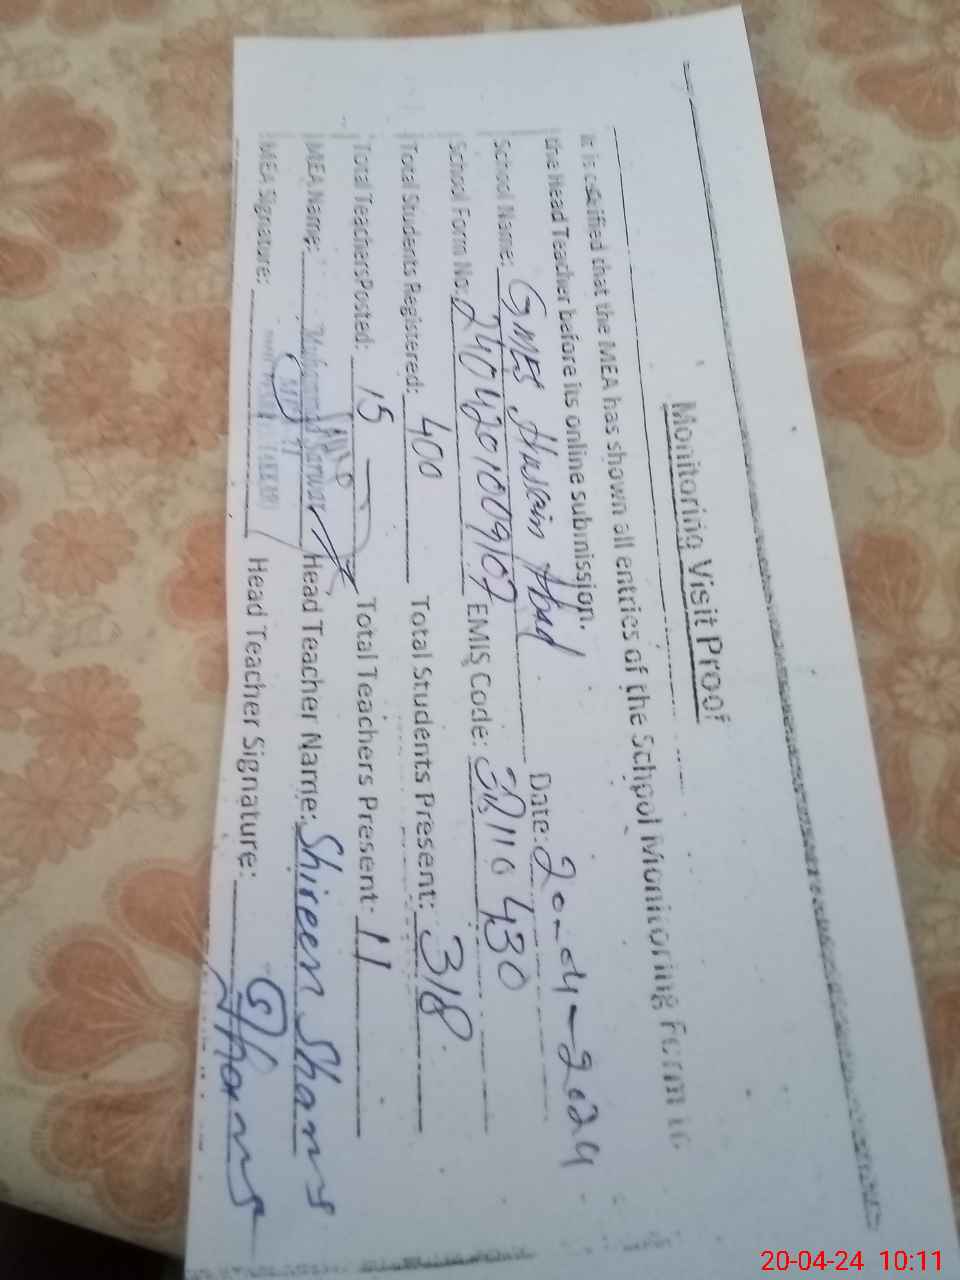 Monitoring Visit Proof
It is certified that the MEA has shown all entries of the School Monitoring Form to
the Head Teacher before its online submission.
School Name: GMES Husain Abad Date: 20-04-2024
School Form No: 2404201009107 EMIS Code: 430
Total Students Registered: 400 Total Students Present: 318
Total Teachers Posted: 15 Total Teachers Present: 11
MEA Name: Muhammad Sarwar Head Teacher Name: Shireen Shams
MEA Signature: Head Teacher Signature: Shams
20-04-24 10:11